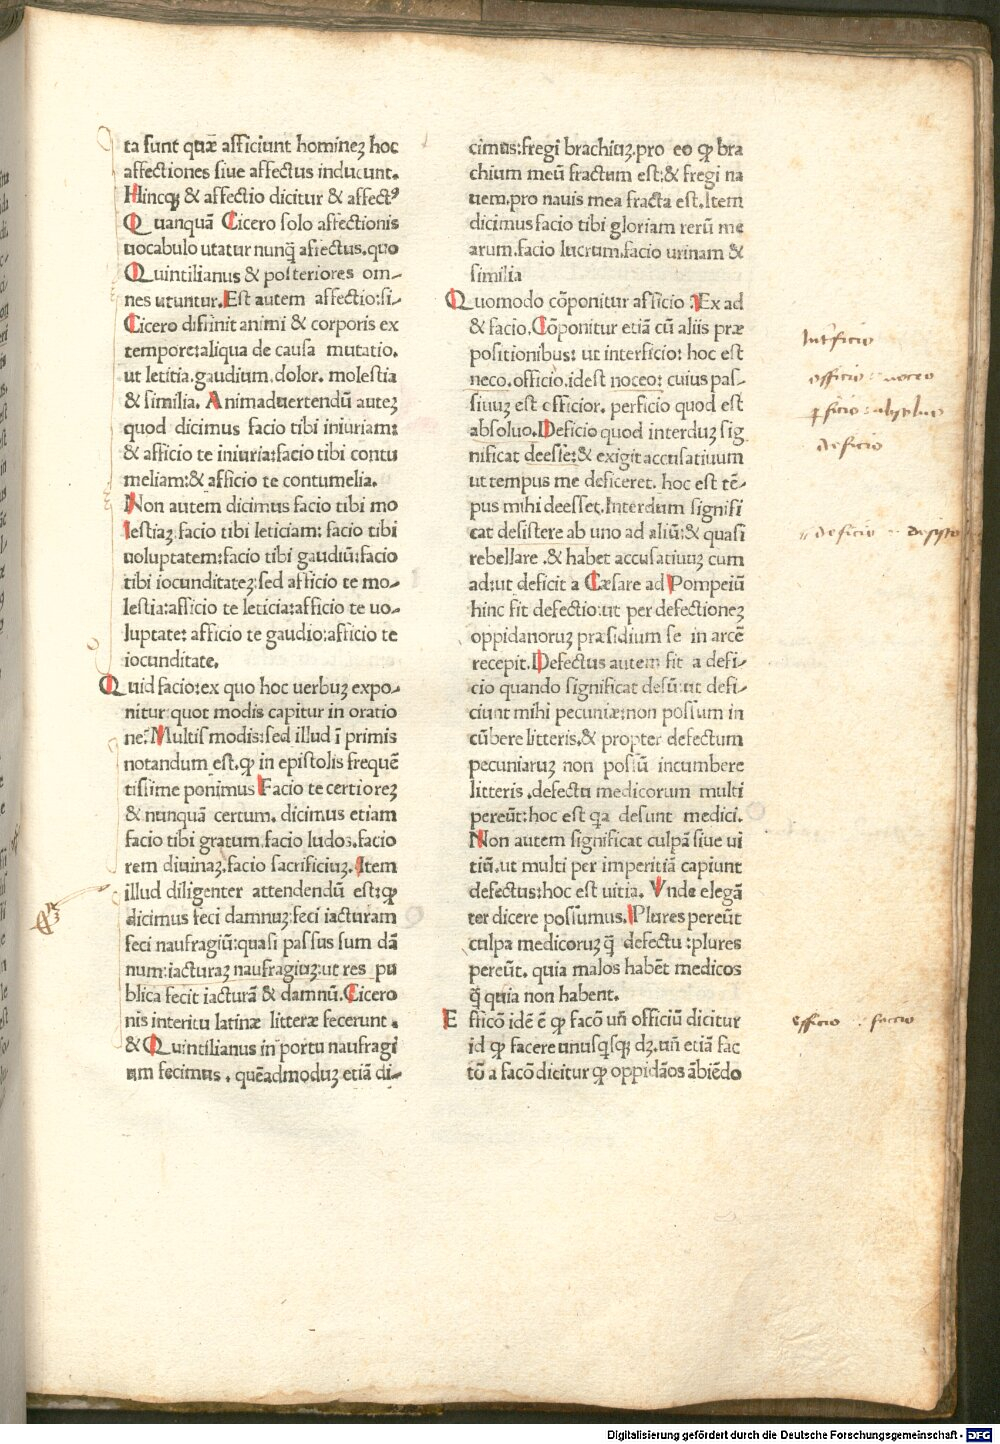 ta sunt quæ afficiunt homineꝫ hoc
affectiones siue affectus inducunt.
Hincqꝫ & affectio dicitur & affectꝰ
Quanquā Cicero solo affectionis
uocabulo utatur nunq̄ affectus. quo
Quintilianus & posteriores om-
nes utuntur. Est autem affectio: si-
Cicero diffinit animi & corporis ex
tempore: aliqua de causa mutatio.
ut letitia. gaudium. dolor. molestia
& similia. Animaduertendū auteꝫ
quod dicimus facio tibi iniuriam:
& afficio te iniuria: facio tibi contu
meliam: & afficio te contumelia.
Non autem dicimus facio tibi mo
lestiaꝫ. facio tibi leticiam: facio tibi
uoluptatem: facio tibi gaudiū: facio
tibi iocunditateꝫ: sed afficio te mo-
lestia: afficio te leticia: afficio te uo-
luptate: afficio te gaudio: afficio te
iocunditate.
Quid facio: ex quo hoc uerbuꝫ expo-
nitur quot modis capitur in oratio
ne? Multis modis: sed illud ī primis
notandum est. ꝙ in epistolis frequē
tissime ponimus Facio te certioreꝫ
& nunquā certum. dicimus etiam
facio tibi gratum. facio ludos. facio
rem diuinaꝫ. facio sacrificiuꝫ. Item
illud diligenter attendendū est: ꝙ
dicimus feci damnuꝫ: feci iacturam
feci naufragiū: quasi passus sum dā
num: iacturaꝫ naufragiuꝫ: ut res pu
blica fecit iacturā & damnū. Cicero
nis interitu latinæ litteræ fecerunt.
& Quintilianus in portu naufragi
um fecimus. quēadmoduꝫ etiā di-
cimus: fregi brachiuꝫ. pro eo ꝙ bra
chium meū fractum est: & fregi na
uem. pro nauis mea fracta est. Item
dicimus facio tibi gloriam rerū me
arum. facio lucrum. facio urinam &
similia
Quomodo cōponitur afficio? Ex ad
& facio. Cōponitur etiā cū aliis præ
positionibus: ut interficio: hoc est
neco. officio. idest noceo: cuius pas-
siuuꝫ est officior. perficio quod est
absoluo. Deficio quod interduꝫ sig
nificat deesse: & exigit accusatiuum
ut tempus me deficeret. hoc est tē-
pus mihi deesset. Interdum signifi
cat desistere ab uno ad aliū: & quasi
rebellare. & habet accusatiuuꝫ cum
ad: ut deficit a Cæsare ad Pompeiū
hinc fit defectio: ut per defectioneꝫ
oppidanoruꝫ præsidium se in arcē
recepit. Defectus autem fit a defi-
cio quando significat desū: ut defi-
ciunt mihi pecuniæ: non possum in
cūbere litteris. & propter defectum
pecuniaruꝫ non possū incumbere
litteris. defectu medicorum multi
pereūt: hoc est qa desunt medici.
Non autem significat culpā siue ui
tiū. ut multi per imperitiā capiunt
defectus: hoc est uitia. Vnde elegā
ter dicere possumus. Plures pereūt
culpa medicoruꝫ q̄ defectu: plures
pereūt. quia malos habēt medicos
q̄ quia non habent.
Efficō idē ē ꝙ facō uñ officiū dicitur
id ꝙ facere unusqsqꝫ dꝫ. uñ etiā fac
tū a facō dicitur ꝙ oppidāos ābiēdo
Int'ficio
officio : noceo
ꝑficio : absoluo
deficio
deficio : desisto
efficio : faccio
Digitalisierung gefördert durch die Deutsche Forschungsgemeinschaft - DFG